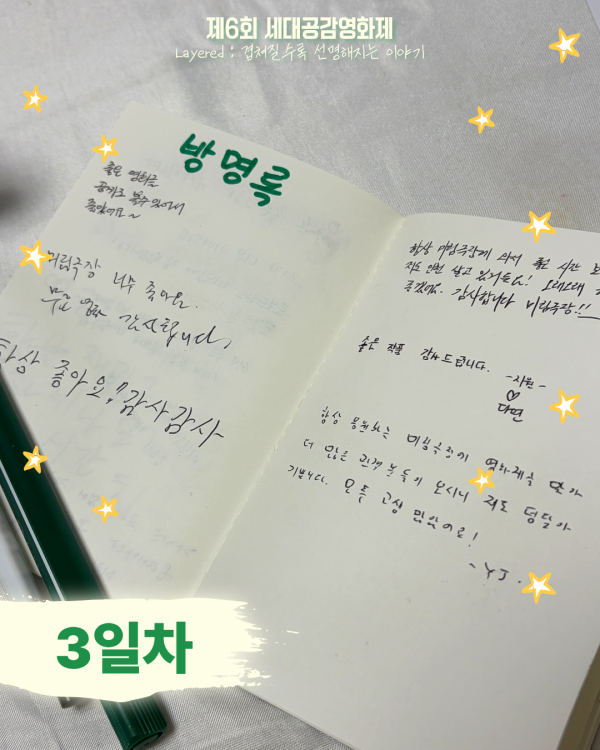 제6회 세대공감영화제
Layered : 겹쳐질수록 선명해지는 이야기
방명록
좋은 영화를
공짜로 볼수있어서
좋았어요~
미림극장 너무 좋아요.
무료 영화 감사합니다.
항상 좋아요!! 감사감사
항상 미림극장에 와서 좋은 시간
지도 인천 살고 있거든요! 오래오래
좋겠어요. 감사합니다 미림극장!!
좋은 작품 감사드립니다. -지원-
♡
다연
항상 응원하는 미림극장이 영화제를 맞아
더 많은 관객분들이 오시니 저도 덩달아
기쁩니다. 모두 고생 많았어요!
- YJ.
3일차